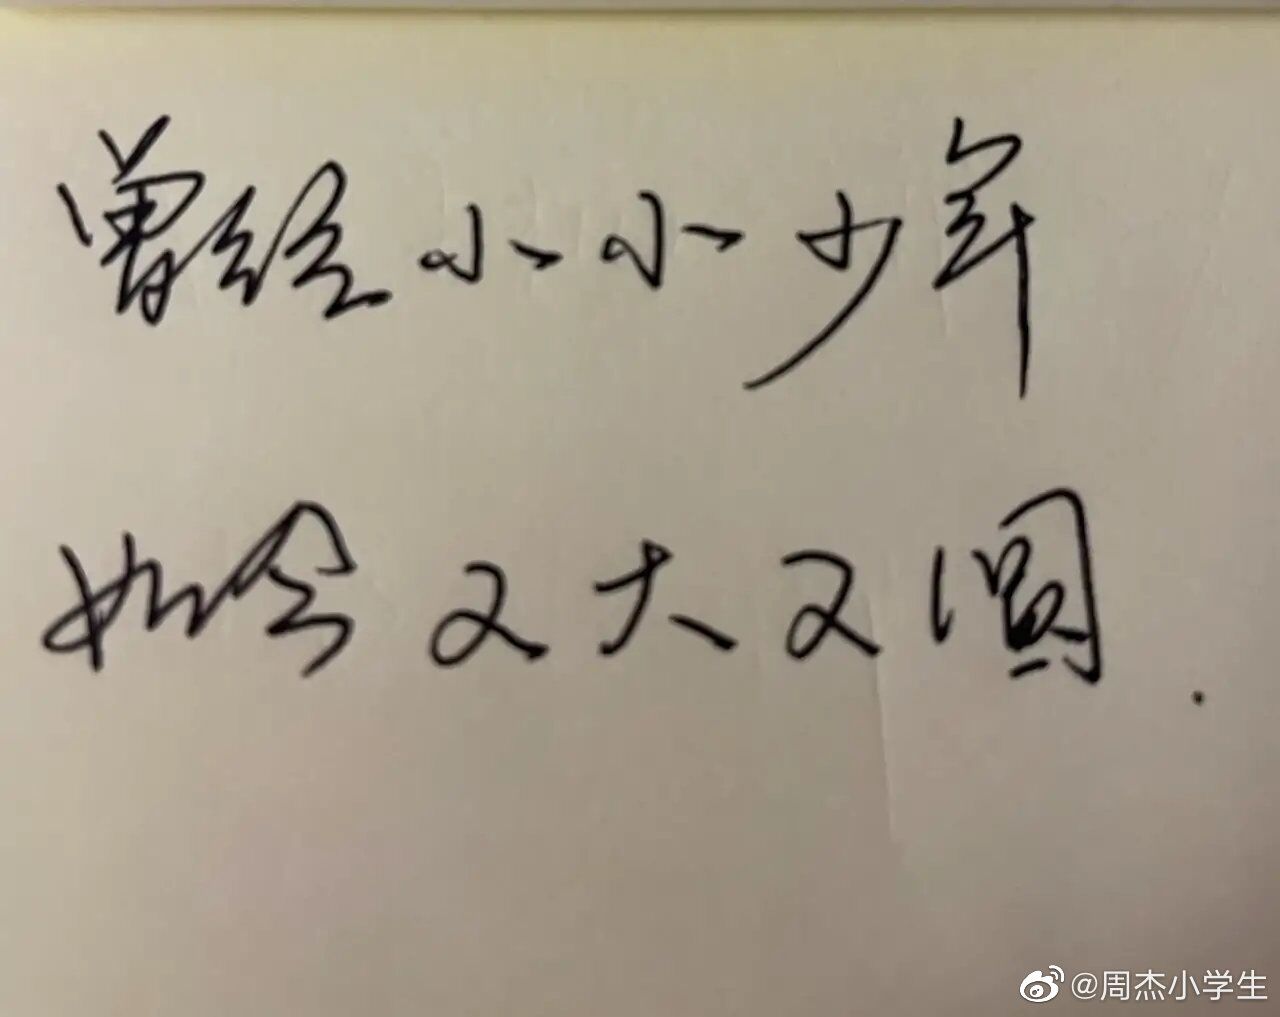 曾经小小少年
如今又大又圆.
@周杰小学生